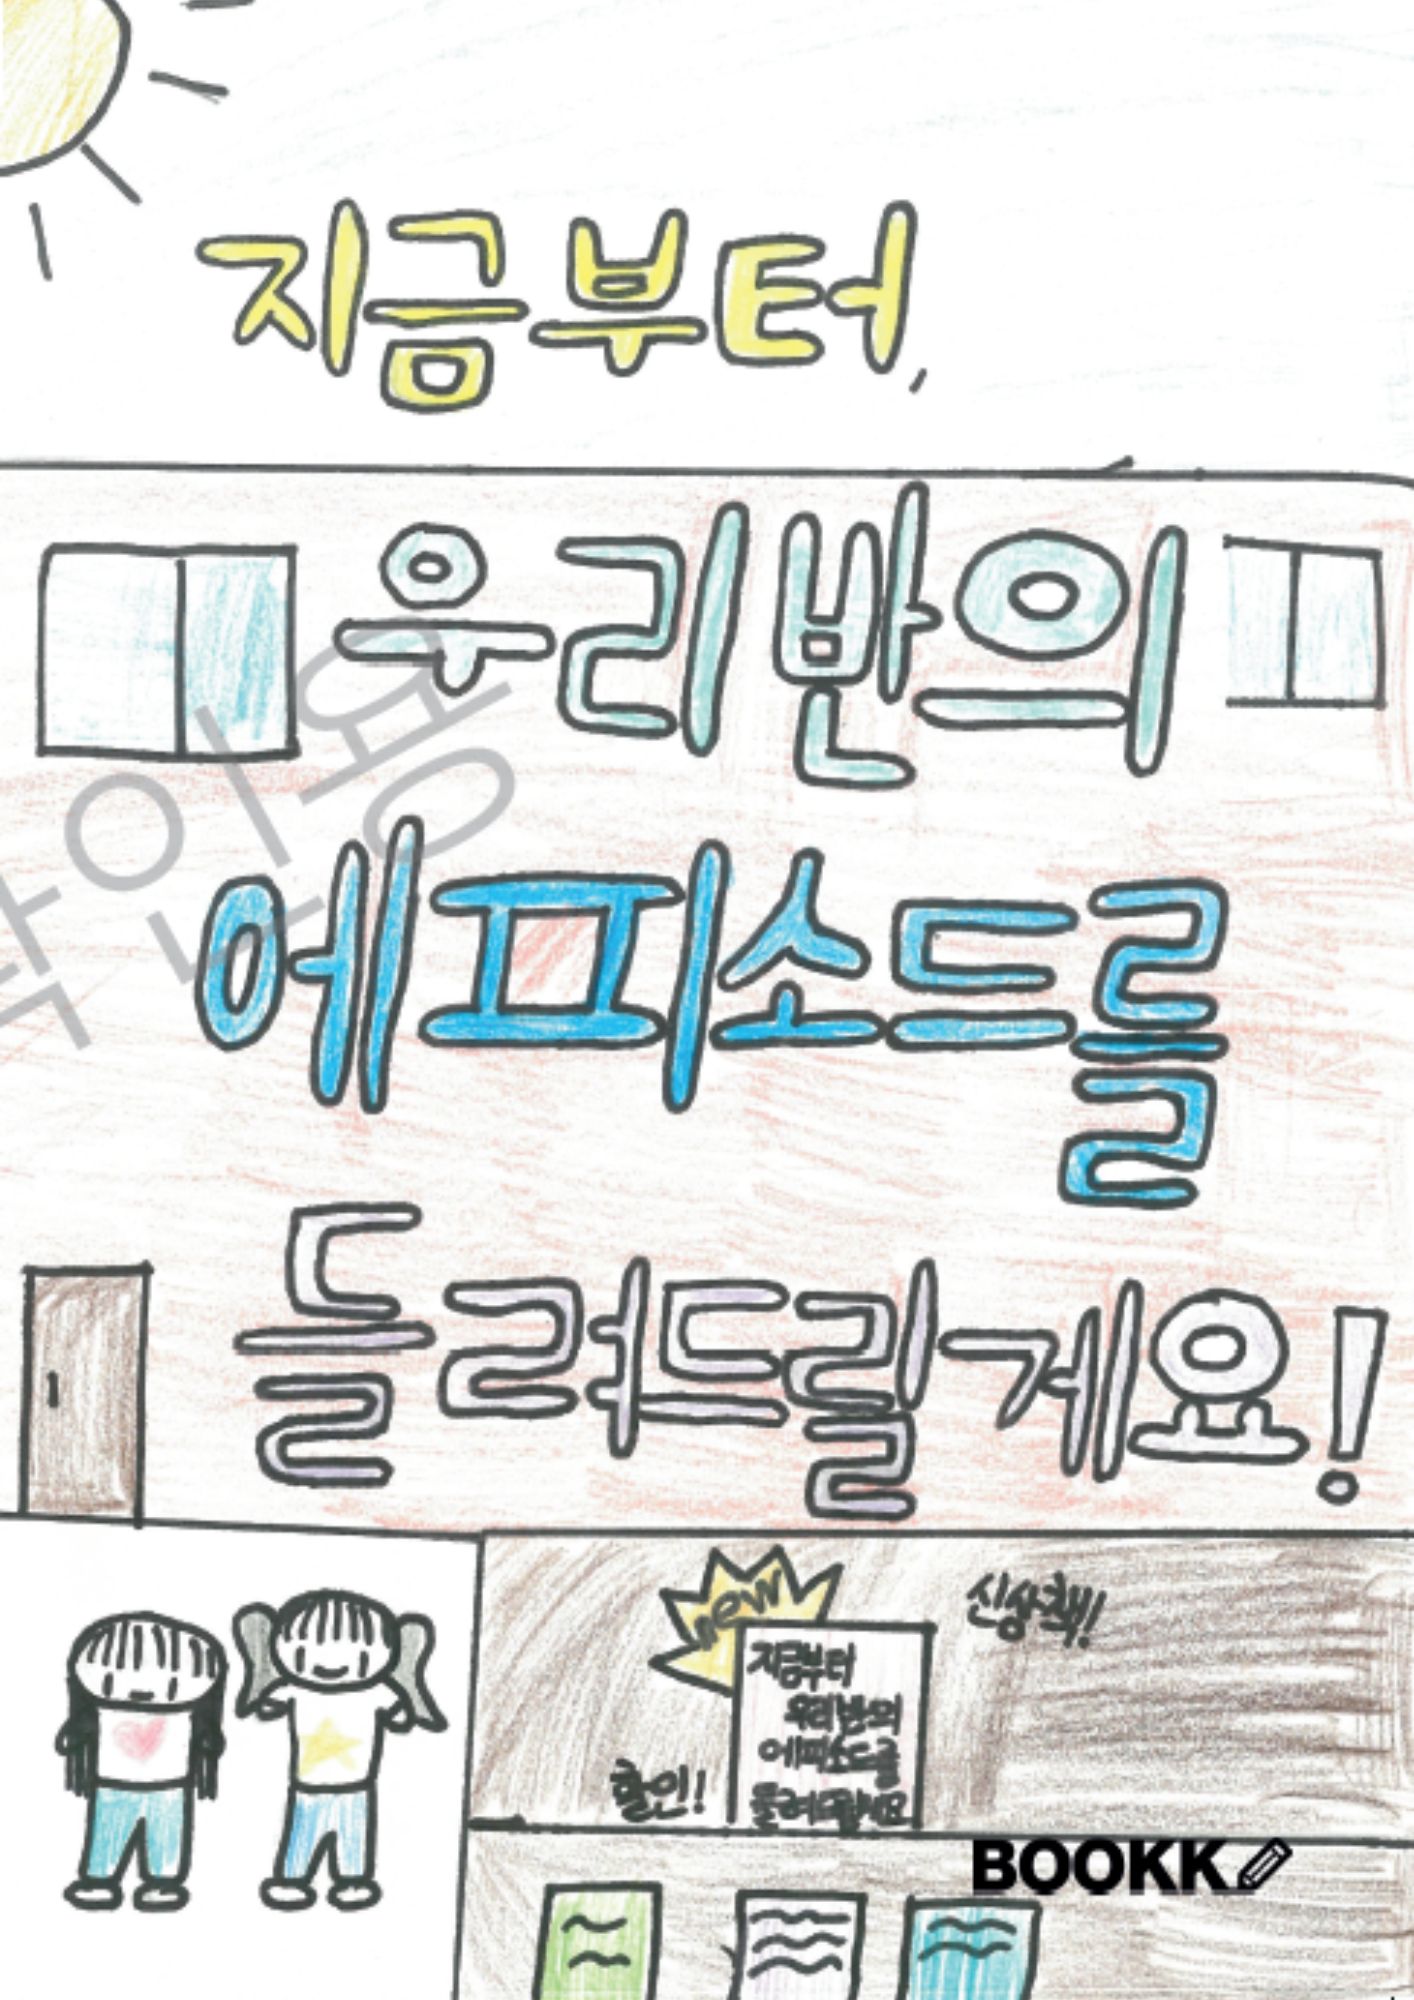 지금부터,
우리반의
에피소드를
들려드릴게요!
new
신상책!
지금부터
우리반의
에피소드를
들려드릴게요
할인!
BOOKK